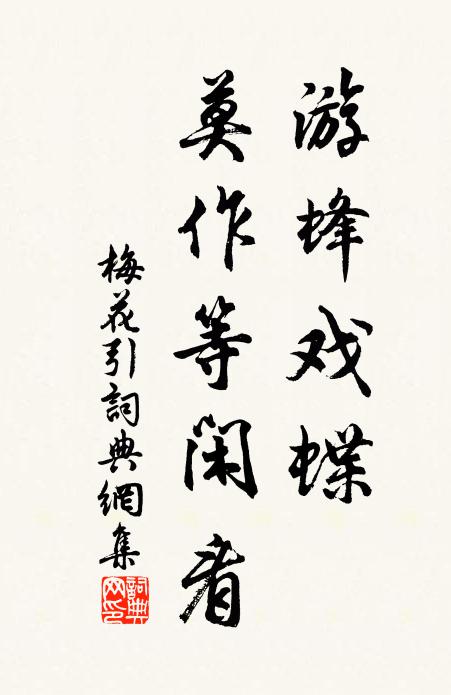 游蜂戏蝶
莫作等闲看
梅花引詞典網集
詞典
网印